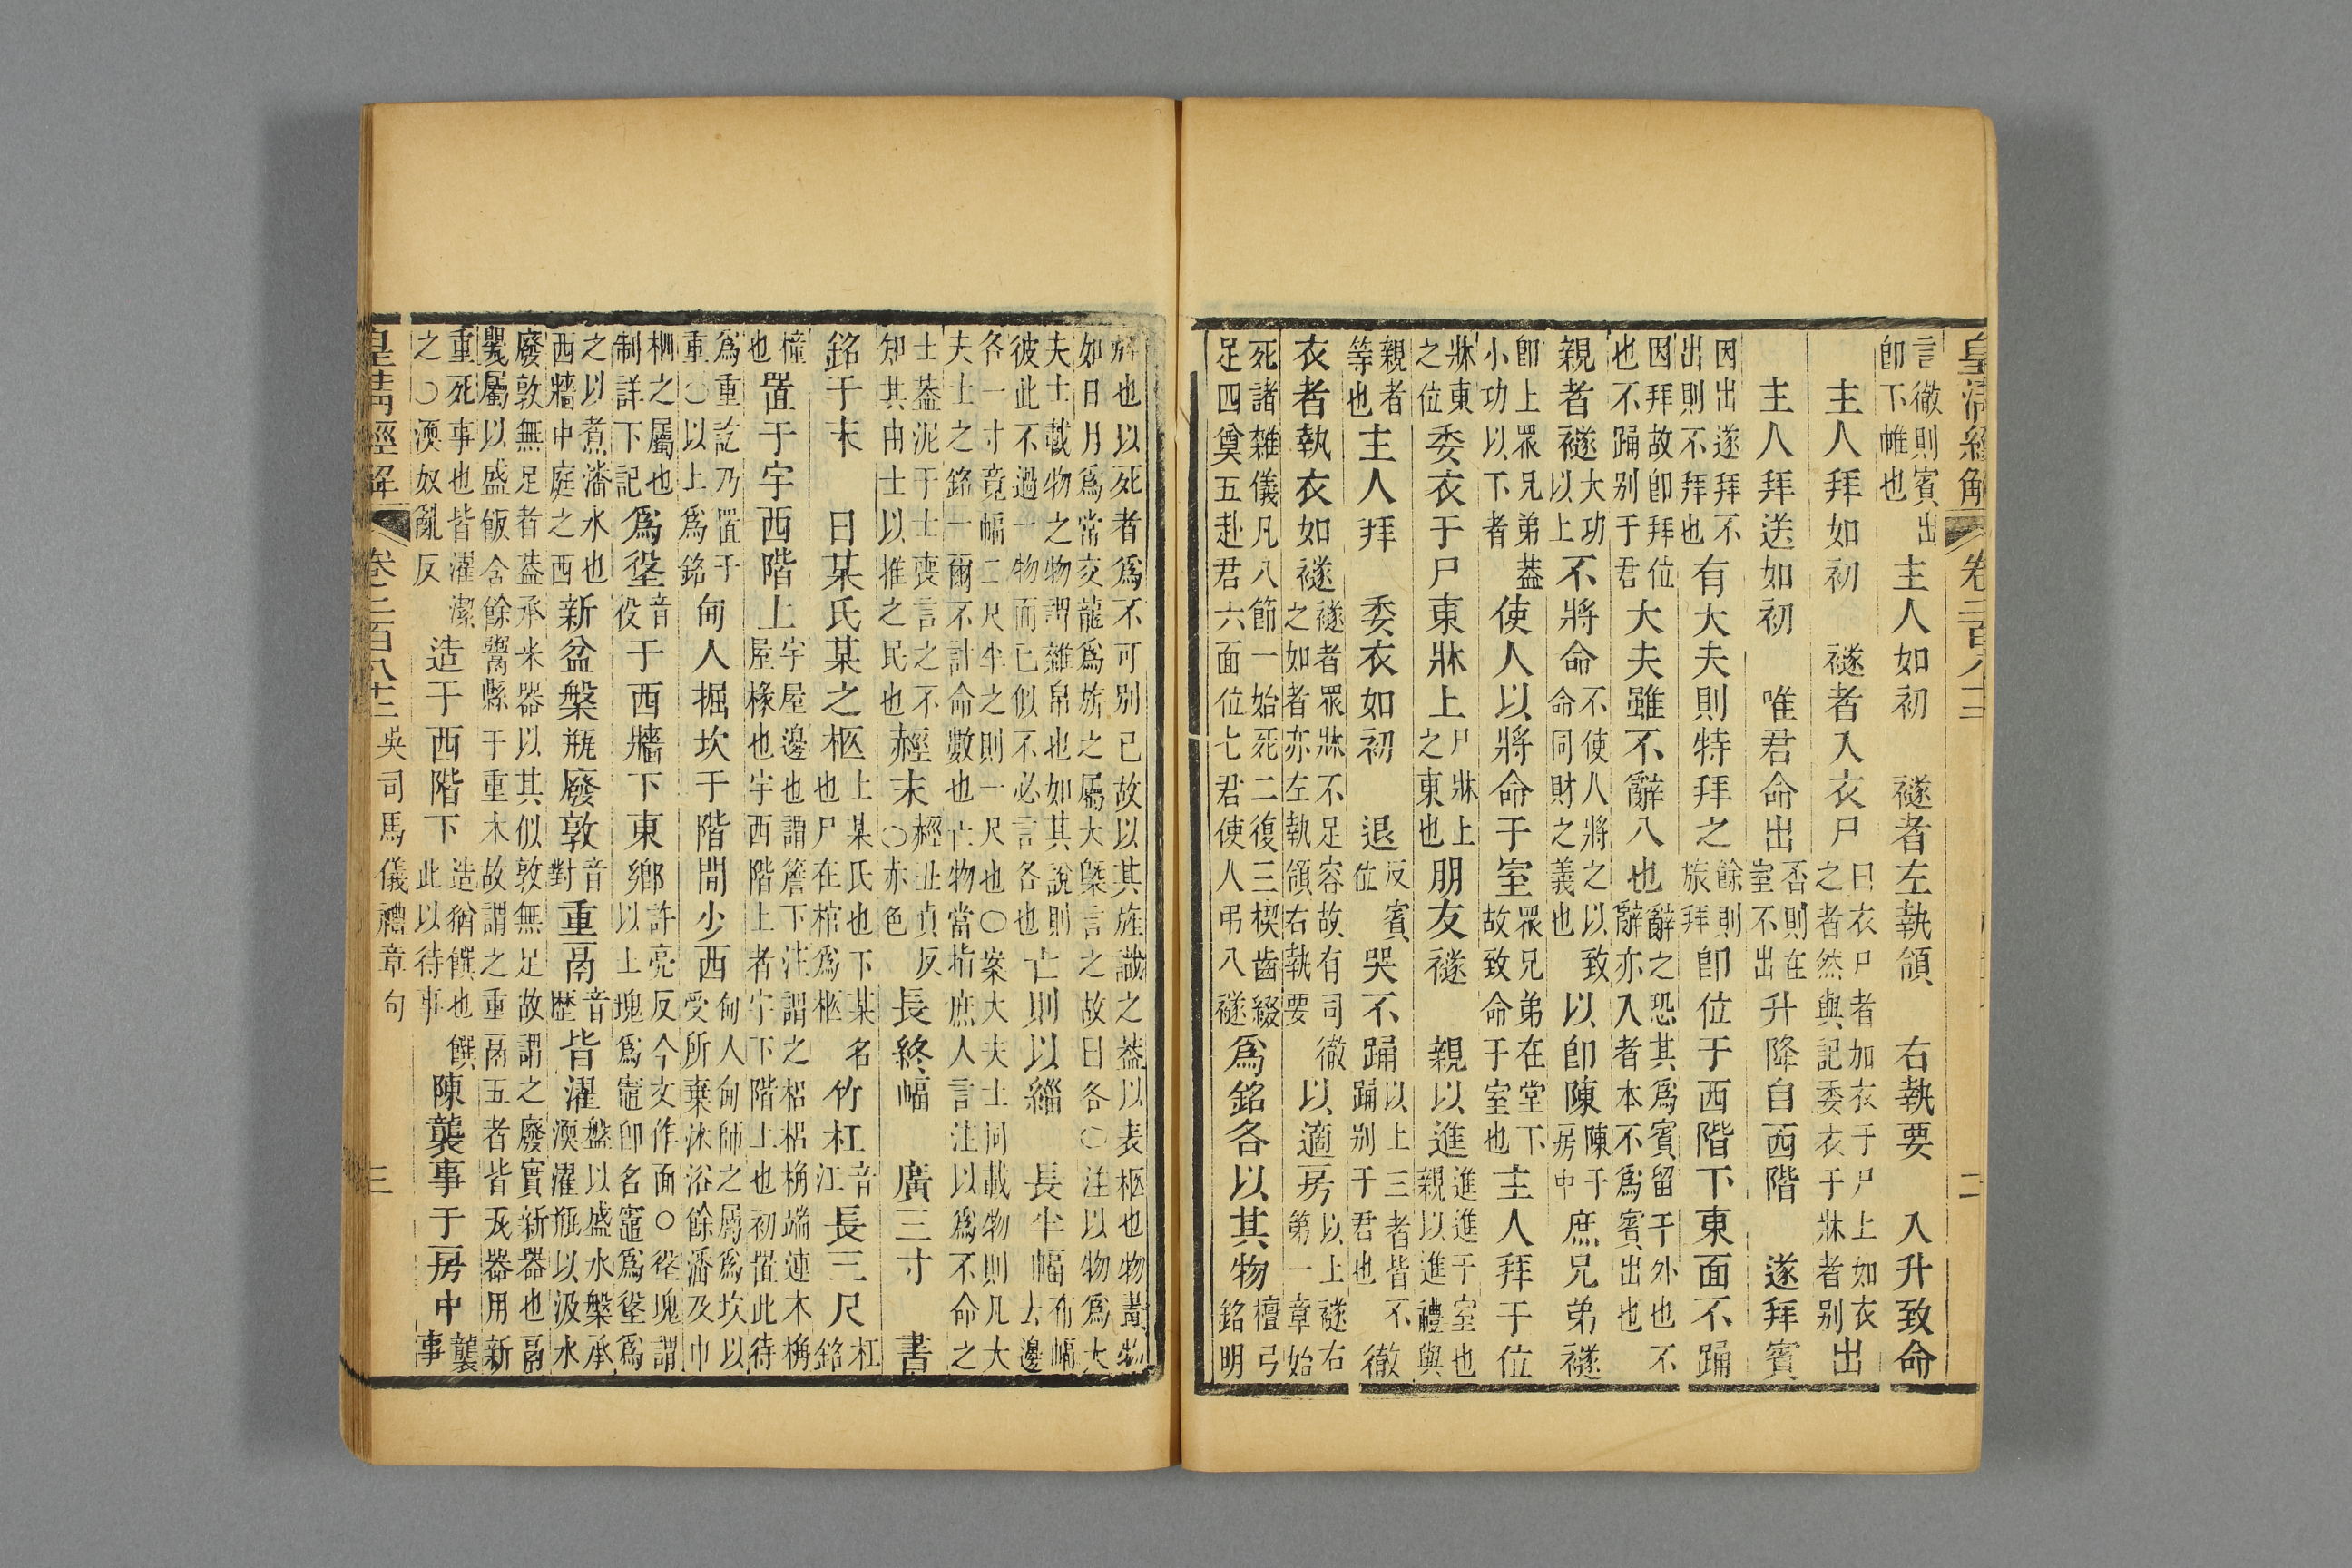 皇清經解 卷二百八十三 二
言徹則賓出卽下帷也 主人如初 襚者左執領 右執要 入升致命
主人拜如初 襚者入衣尸 曰衣尸者加衣于尸上如衣之者然與記委衣于牀者别 出
主人拜送如初 唯君命出 否則在室不出 升降自西階 遂拜賓
因出遂拜不出則不拜也 有大夫則特拜之 餘則旅拜 卽位于西階下東面不踊
因拜故卽拜位也不踊别于君 大夫雖不辭入也 辭辭之恐其爲賓留于外也不辭亦入者本不爲賓出也
親者襚 大功以上 不將命 不使人將之以致命同財之義也 以卽陳 陳于房中 庶兄弟襚
卽上眾兄弟蓋小功以下者 使人以將命于室 眾兄弟在堂下故致命于室也 主人拜于位
牀東之位 委衣于尸東牀上 尸牀上之東也 朋友襚 親以進 進進于室也親以進禮與
親者等也 主人拜 委衣如初 退 反賓位 哭不踊 以上三者皆不踊别于君也 徹
衣者執衣如襚 襚者眾牀不足容故有司徹之如者亦左執領右執要 以適房 以上襚右第一章始
死諸雜儀凡八節一始死二復三楔齒綴足四奠五赴君六面位七君使人弔八襚 爲銘各以其物 檀弓銘明
旌也以死者爲不可别已故以其旌識之蓋以表柩也物葢物
如日月爲常交龍爲旂之屬大槩言之故曰各〇注以物爲大
夫士載物之物謂雜帛也如其說則 亡則以緇 長半幅 布幅去邊
彼此不過一物而已似不必言各也
各一寸竟幅二尺半之則一尺也〇案大夫士同載物則凡大
夫士之銘一爾不計命數也亡物當指庶人言注以爲不命之
士葢泥于士喪言之不知其由士以推之民也 赬末 赬丑貞反〇赤色 長終幅 廣三寸 書
銘于末 曰某氏某之柩 上某氏也下某名也尸在棺爲柩 竹杠 音江 長三尺 杠銘
橦也 置于宇西階上 宇屋邊也謂簷下注謂之梠梠桷端連木桷屋椽也宇西階上者宇下階上也初置此待
爲重訖乃置于重〇以上爲銘 甸人掘坎于階間少西 甸人甸師之屬爲坎以受所棄沐浴餘潘及巾
柶之屬也制詳下記 爲垼 音役 于西牆下東鄉 許亮反今文作面〇垼塊謂以上塊爲竈卽名竈爲垼爲
之以煮潘水也西牆中庭之西 新盆槃瓶廢敦 音對 重鬲 音歷 皆濯 盤以盛水槃承渜濯瓶以汲水
廢敦無足者葢承米器以其似敦無足故謂之廢實新器也鬲
㽁屬以盛飯含餘鬻縣于重木故謂之重鬲五者皆瓦器用新
重死事也皆濯潔之〇渜奴亂反 造于西階下 造猶饌也饌此以待事 陳襲事于房中 襲事
皇清經解 卷二百八十三 吳司馬儀禮章句 三